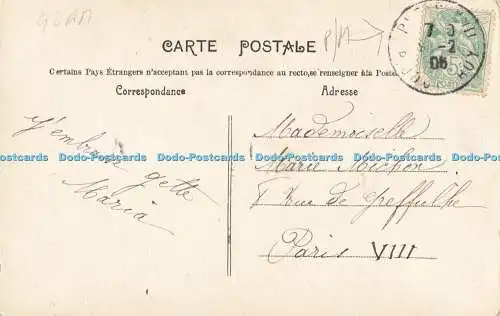 CARTE POSTALE
Certains Pays Étrangers n'acceptant pas la correspondance au recto, se renseigner à la Poste
Correspondance
Adresse
J'embrasse gette
Maria
Mademoiselle
Marie Michon
Rue de Greffulhe
Paris VIII
7
-2
05
5
Dodo-Postcards Dodo-Postcards Dodo-Postcards Dodo-Postcards Dodo-Postcards Dodo-Postcards